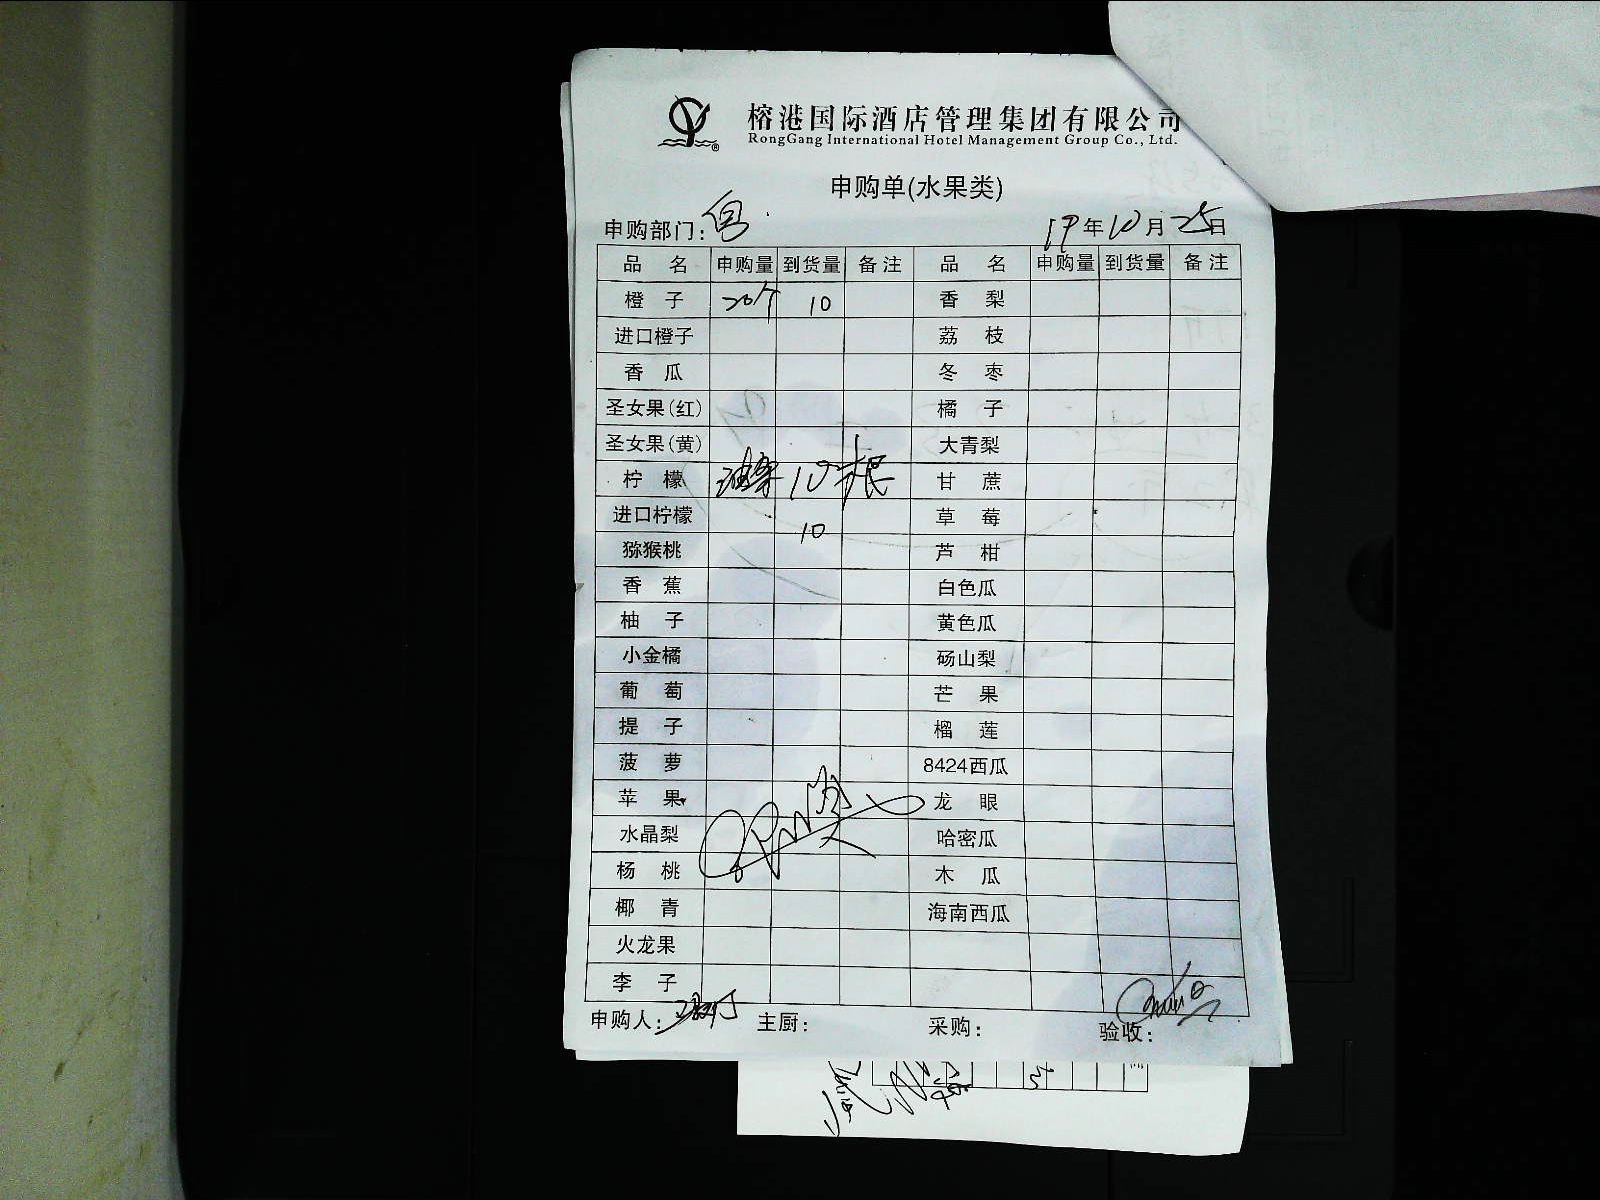 榕港国际酒店管理集团有限公司
RongGang International Hotel Management Group Co., Ltd.
申购单(水果类)
申购部门: 19年10月25日
品名 申购量 到货量 备注 品名 申购量 到货量 备注
橙子 20个 10 香梨
进口橙子 荔枝
香瓜 冬枣
圣女果(红) 橘子
圣女果(黄) 大青梨
柠檬 油条 10根 甘蔗
进口柠檬 10 草莓
猕猴桃 芦柑
香蕉 白色瓜
柚子 黄色瓜
小金橘 砀山梨
葡萄 芒果
提子 榴莲
菠萝 8424西瓜
苹果 龙眼
水晶梨 哈密瓜
杨桃 木瓜
椰青 海南西瓜
火龙果
李子
申购人: 主厨: 采购: 验收: